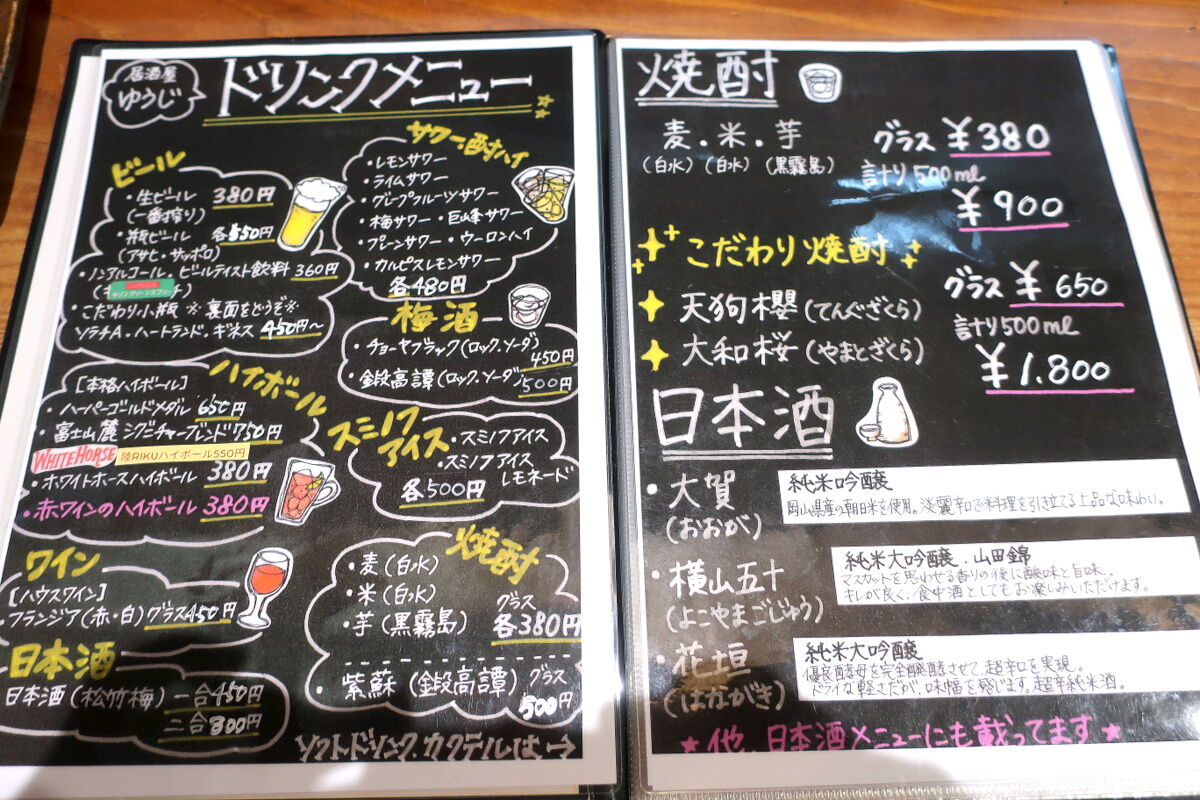 居酒屋
ゆうじ
ドリンクメニュー
ビール
・生ビール 380円
(一番搾り)
・瓶ビール 各550円
(アサヒ・サッポロ)
・ノンアルコール、ビールテイスト飲料 360円
キリングリーンズフリー
・こだわり小瓶 ※裏面をどうぞ※
ソラチA・ハートランド・ギネス 450円〜
サワー・酎ハイ
・レモンサワー
・ライムサワー
・グレープフルーツサワー
・梅サワー・巨峰サワー
・プレーンサワー・ウーロンハイ
・カルピスレモンサワー
各480円
梅酒
・チョーヤブラック(ロック、ソーダ)
450円
・鍛高譚(ロック、ソーダ) 500円
ハイボール
[本格ハイボール]
・ハーパーゴールドメダル 650円
・富士山麓 シグニチャーブレンド 750円
WHITE HORSE 陸RIKUハイボール550円
・ホワイトホースハイボール 380円
・赤ワインのハイボール 380円
スミノフ
アイス
・スミノフアイス
・スミノフアイス
レモネード
各500円
ワイン
[ハウスワイン]
・フランジア(赤・白)グラス450円
日本酒
日本酒(松竹梅) 一合450円
二合800円
焼酎
・麦(白水)
・米(白水)
・芋(黒霧島)
グラス
各380円
・紫蘇(鍛高譚) グラス
500円
ソフトドリンク、カクテルは→
焼酎
麦・米・芋 グラス ¥380
(白水)(白水)(黒霧島) 計り500ml
¥900
こだわり焼酎
グラス ¥650
天狗櫻(てんぐざくら)
計り500ml
大和桜(やまとざくら)
¥1.800
日本酒
・大賀
(おおが)
純米吟醸
岡山県産の朝日米を使用。淡麗辛口で料理を引き立てる上品な味わい。
・横山五十
(よこやまごじゅう)
純米大吟醸、山田錦
マスカットを思わせる香りの後に酸味と旨味。
キレが良く、食中酒としてもお楽しみいただけます。
・花垣
(はながき)
純米大吟醸
優良酵母を完全醗酵させて、超辛口を実現。
ドライな軽さだが、味幅を感じます。超辛純米酒。
★他、日本酒メニューにも載ってます★